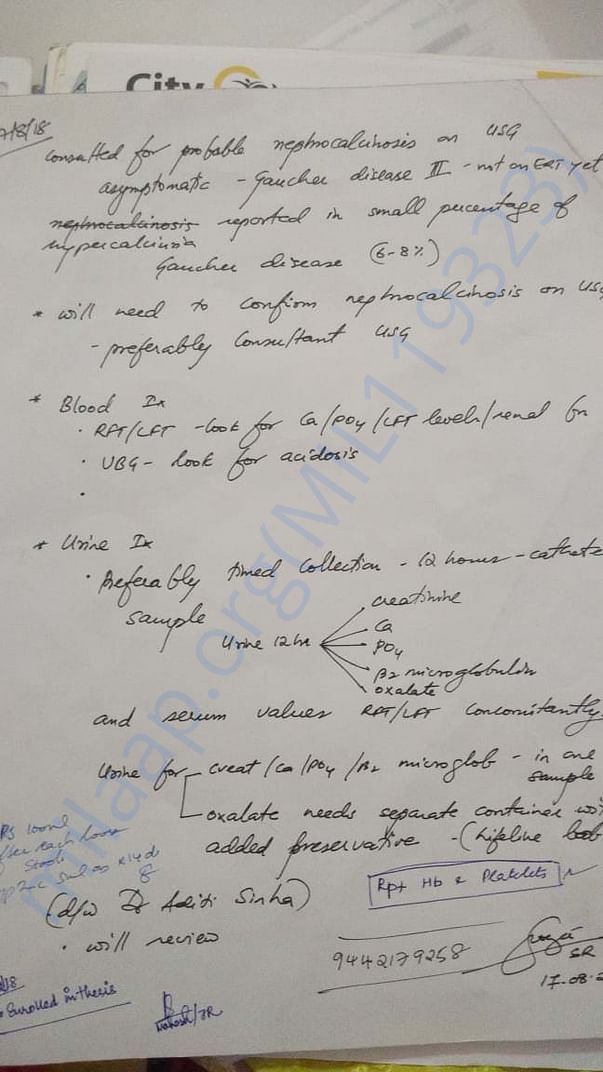 City
7/8/18
Consulted for probable nephrocalcinosis on USG
asymptomatic - Gaucher disease II - not on ERT yet
nephrocalcinosis reported in small percentage of
hypercalciuria
Gaucher disease (6-8%)
* will need to confirm nephrocalcinosis on USG
- preferably Consultant USG
* Blood Ix
· RFT/LFT - look for Ca/PO4/LFT levels/renal fn
· VBG - look for acidosis
·
* Urine Ix
· Preferably timed collection - 12 hours - cathete
sample
Urine 12 hr
creatinine
Ca
PO4
β2 microglobulin
oxalate
and serum values RFT/LFT concomitantly
Urine for creat/Ca/PO4/β2 microglob - in one
sample
oxalate needs separate container
added preservative - (Lifeline lab
ORS 100ml
after each loose
stools
x14d
Rpt Hb & Platelets
(d/w Dr Aditi Sinha)
· will review
9442179258
SR
17-08-2
/8/18
Enrolled in thesis
Mahesh/JR
milaap.org(MIL119323)